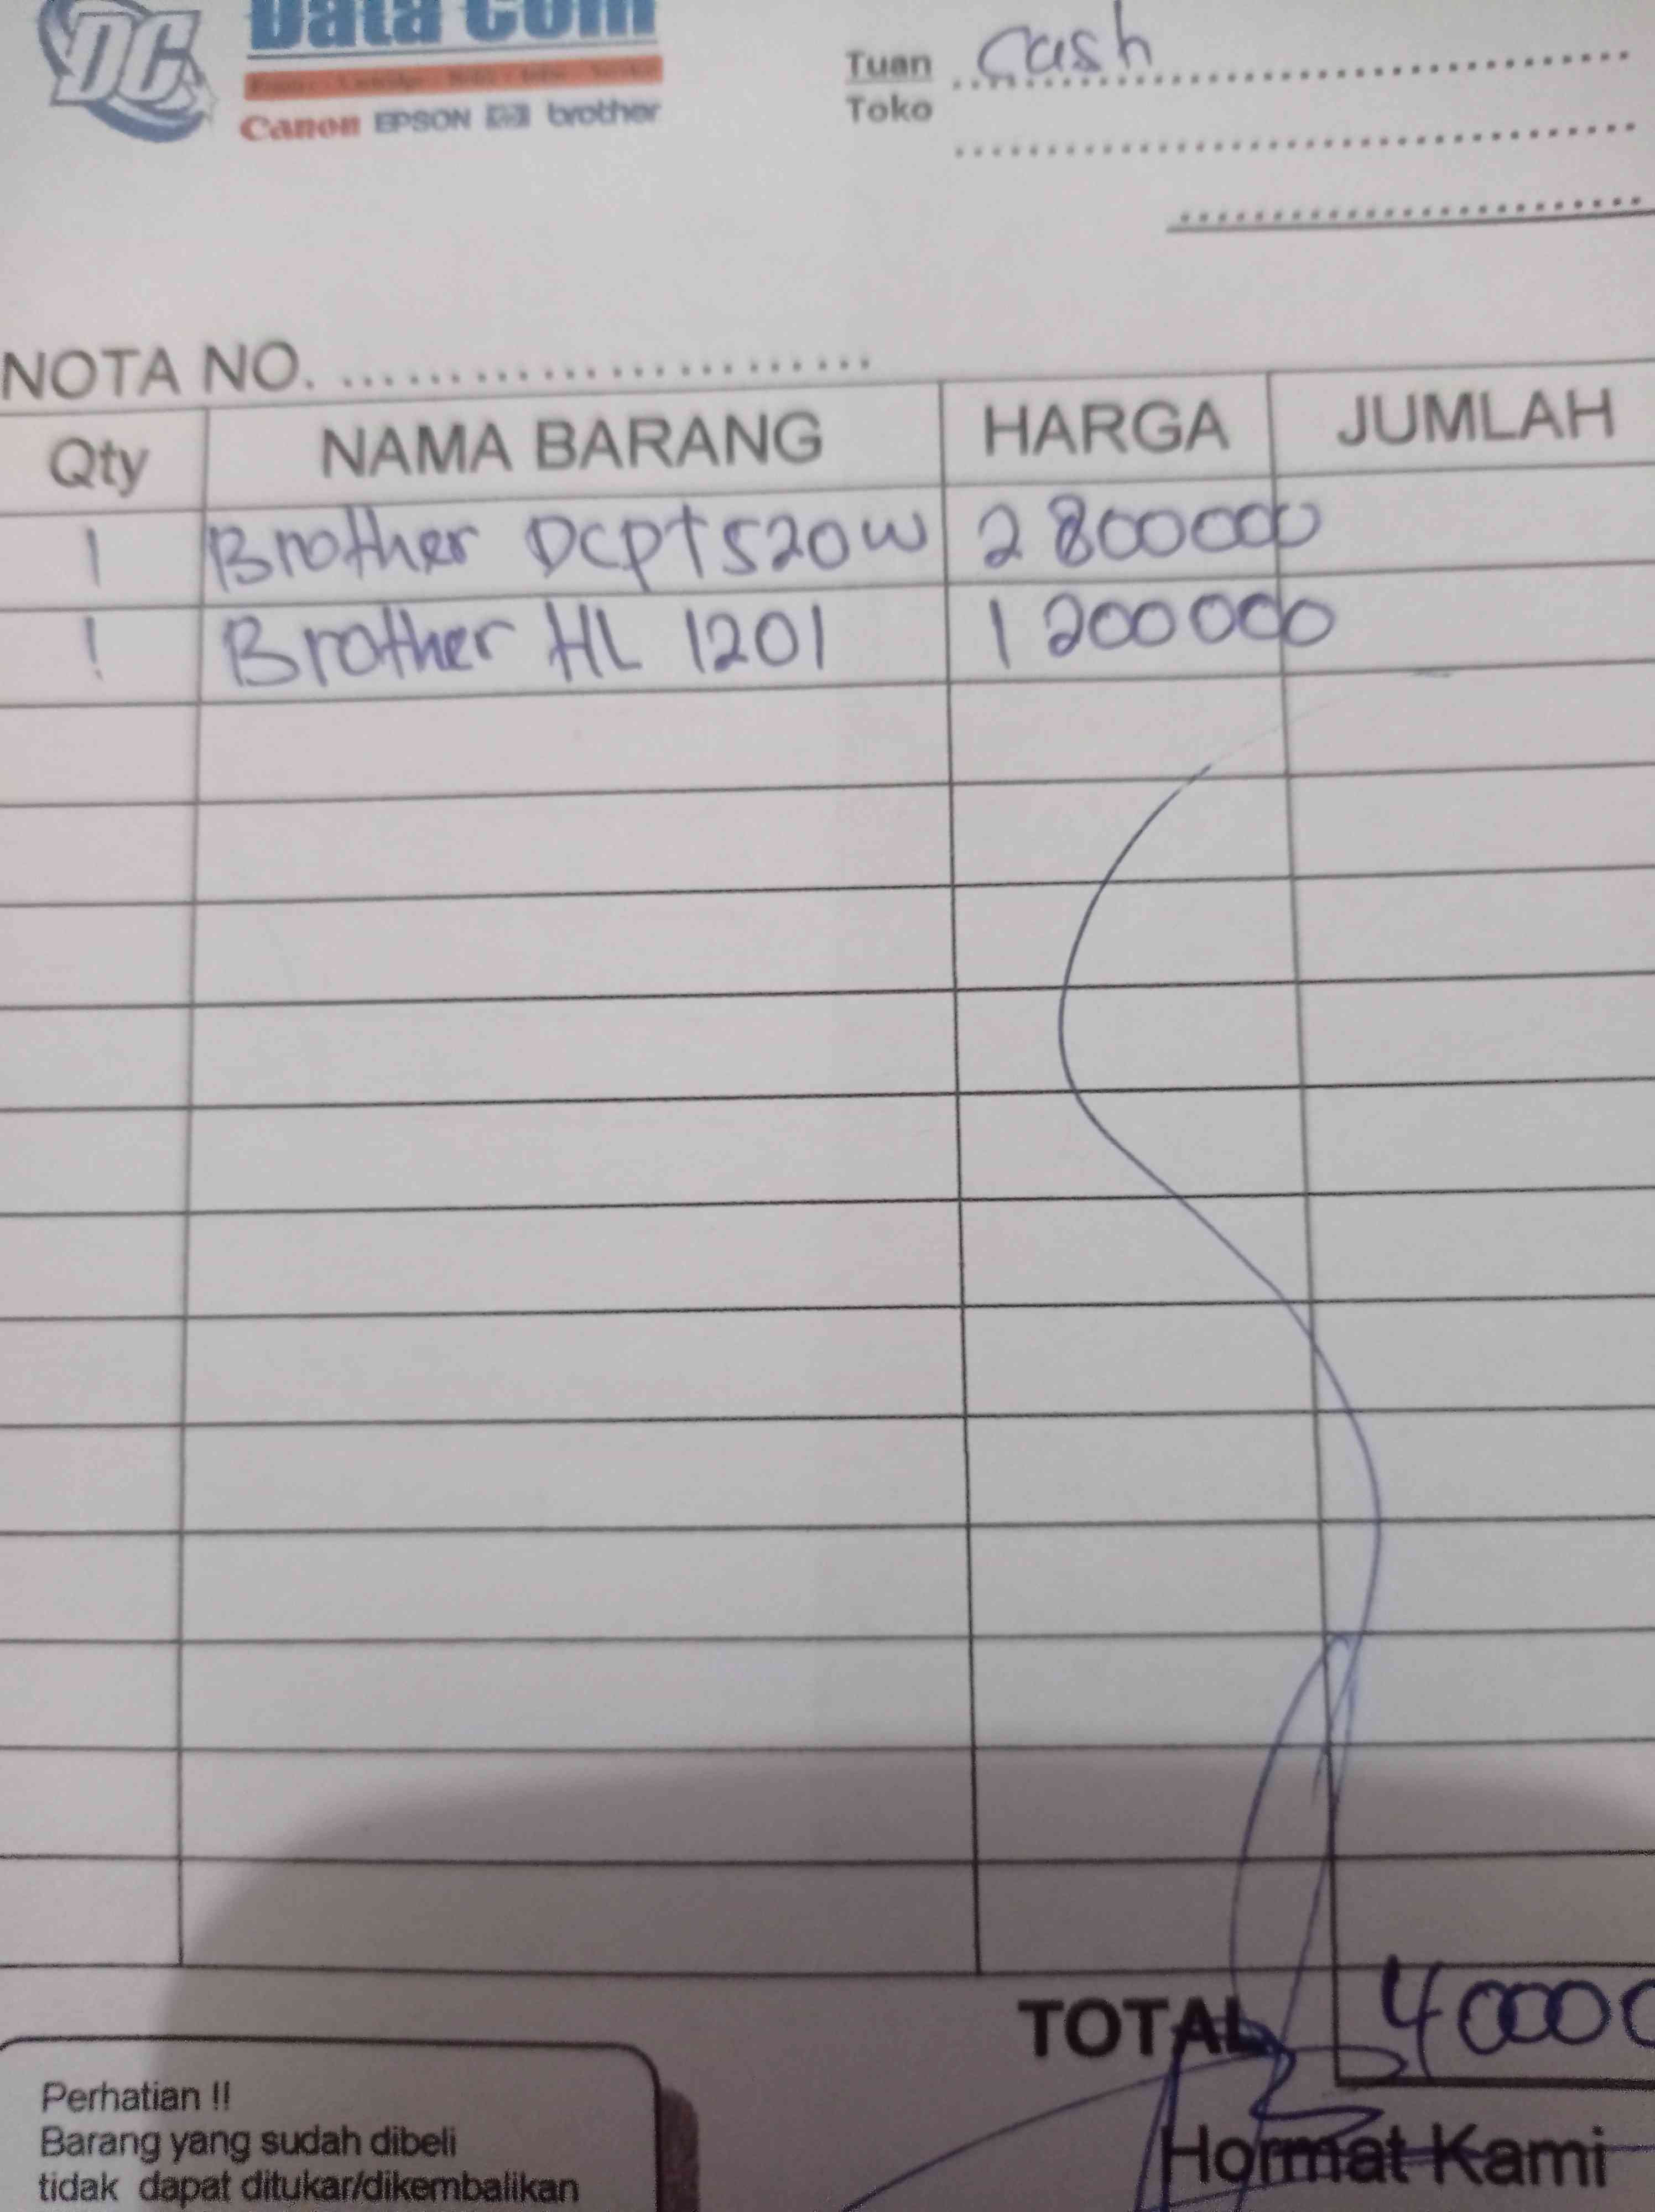 DC
Data Com
Canon EPSON hp brother
Tuan Cash
Toko
NOTA NO.
Qty NAMA BARANG HARGA JUMLAH
1 Brother DCPT520W 2800000
1 Brother HL 1201 1200000
TOTAL 40000
Perhatian !!
Barang yang sudah dibeli
tidak dapat ditukar/dikembalikan
Hormat Kami